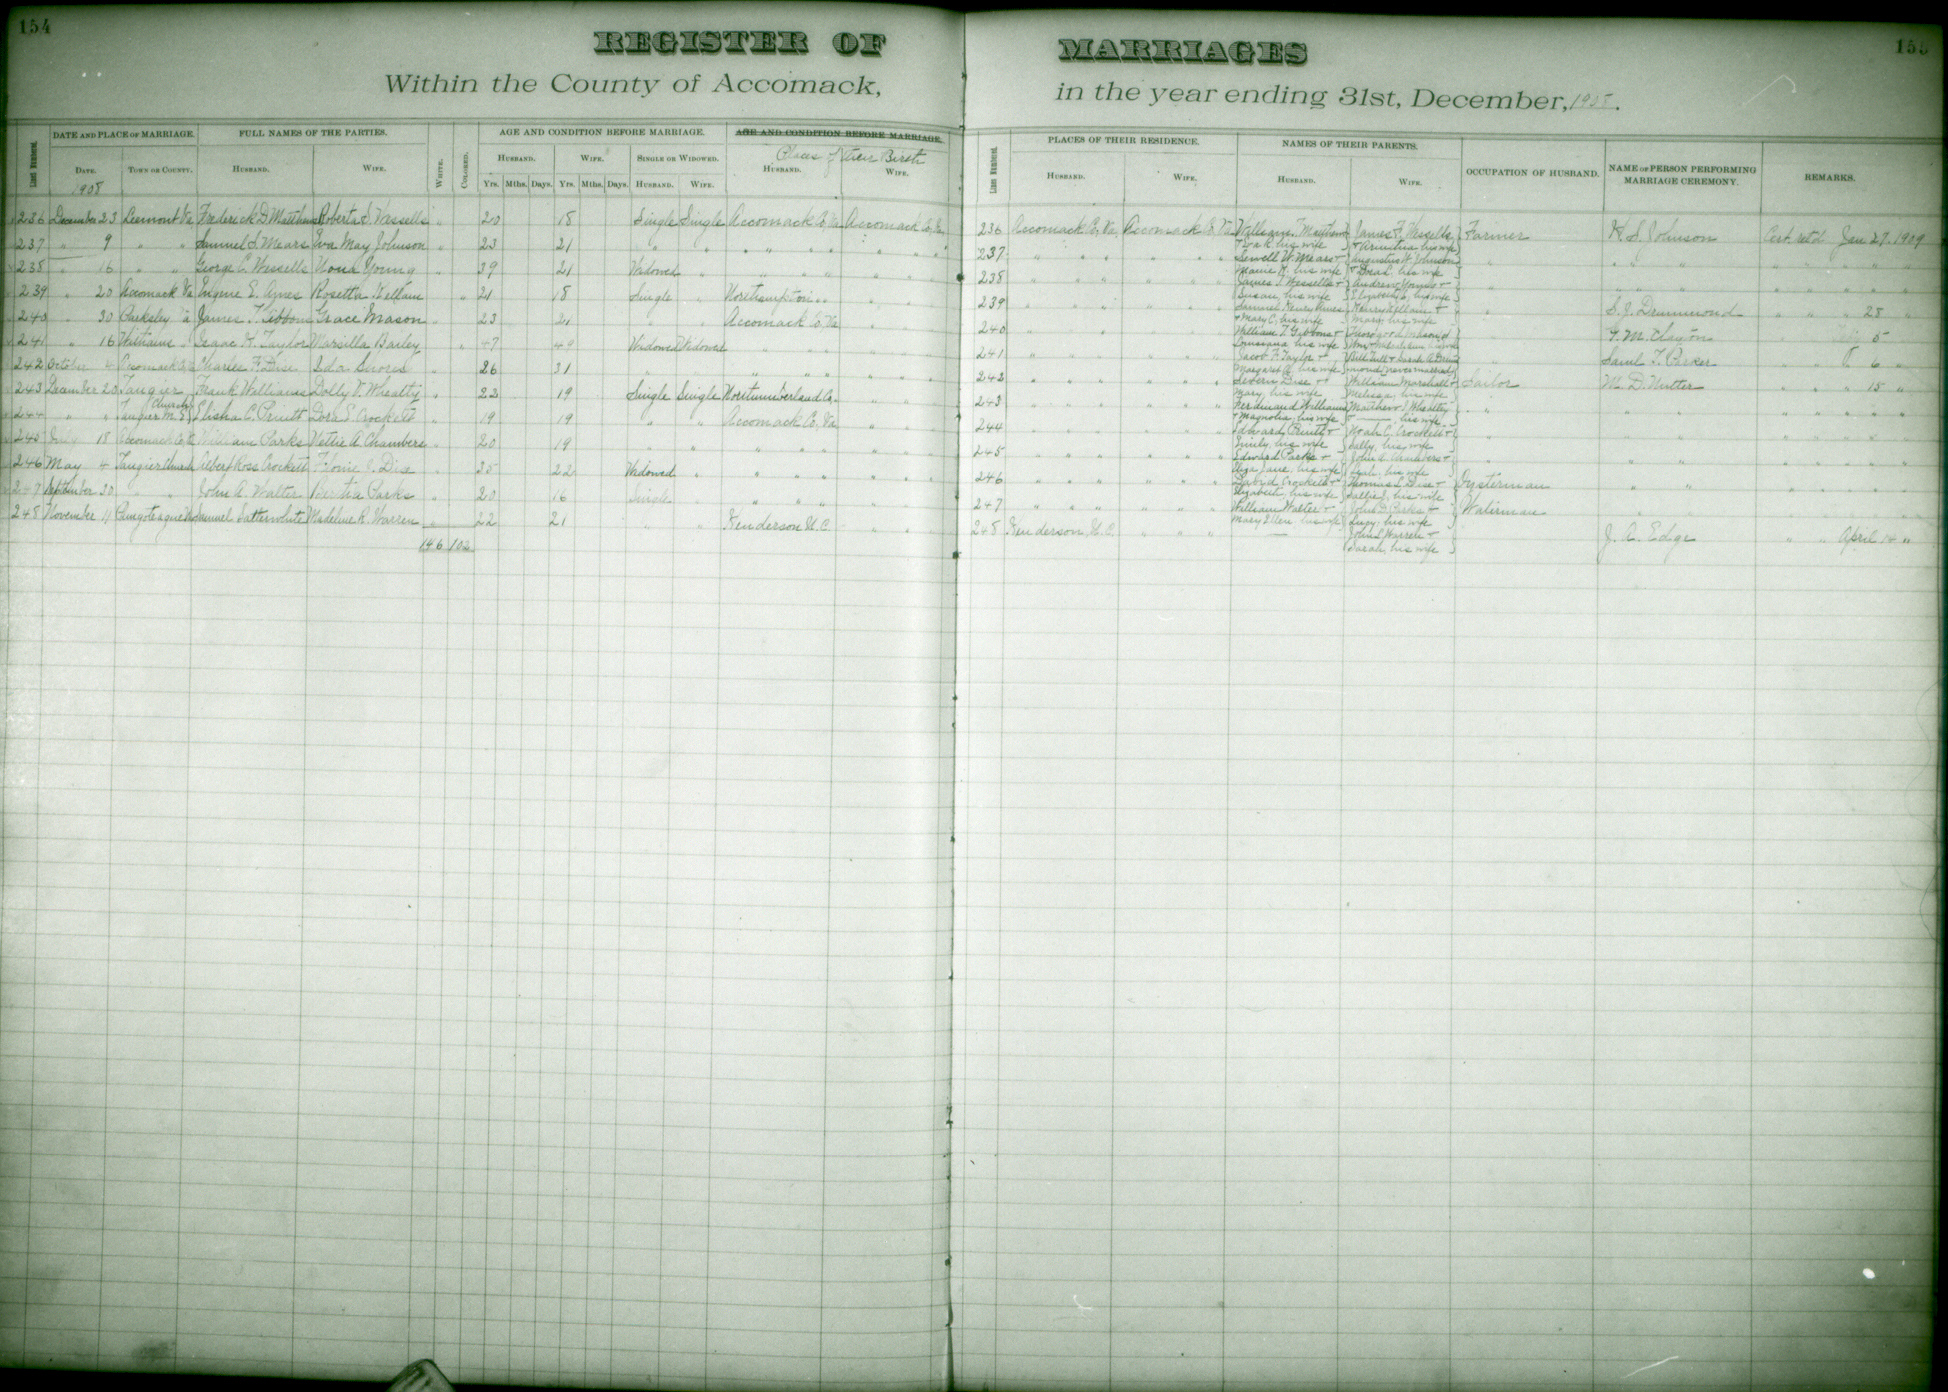 154
REGISTER OF
Within the County of Accomack,
DATE AND PLACE OF MARRIAGE. FULL NAMES OF THE PARTIES. WHITE. COLORED. AGE AND CONDITION BEFORE MARRIAGE. AGE AND CONDITION BEFORE MARRIAGE.
Places of their Birth
Line Numbers. DATE. TOWN OR COUNTY. HUSBAND. WIFE. HUSBAND. WIFE. SINGLE OR WIDOWED. HUSBAND. WIFE.
1908 Yrs. Mths. Days. Yrs. Mths. Days. HUSBAND. WIFE.
236 December 23 Leemont Va Frederick D. Matthews Roberta S. Wessells " 20 18 Single Single Accomack Co. Va Accomack Co. Va
237 " 9 " " Samuel S. Mears Iva May Johnson " 23 21 " " " " " "
238 " 16 " " George C. Wessells Nona Young " 39 21 Widowed " " " " "
239 " 20 Accomack Va Eugene E. Ames Rosetta Kellam " 21 18 Single " Northampton " "
240 " 30 Parksley Va James T. Gibbons Grace Mason " 23 21 " " Accomack Co. Va
241 " 16 Isaac H. Taylor Bailey " 47 49 Widowed Widowed " "
242 October 4 Accomack Co. Charles F. Dise Ida 26 31 " " " "
243 December 20 Tangier Frank Williams Dolly V. Wheatly " 23 19 Single Single Northumberland Co.
244 " " Tangier M.E. Church Elisha C. Pruitt Dora E. Crockett " 19 19 " " Accomack Co. Va
245 July 18 Accomack Co. William Parks Nettie A. Chambers " 20 19 " " " "
246 May 4 Tangier Church Albert Ross Crockett J. Dise " 35 22 Widowed " " "
247 September 20 " " John A. Walter Bertia Parks " 20 16 Single " " "
248 November 11 Samuel Satterwhite Madeline R. Warren 22 21 " " Henderson N.C.
146 102
155
MARRIAGES
in the year ending 31st, December, 1908.
PLACES OF THEIR RESIDENCE. NAMES OF THEIR PARENTS. OCCUPATION OF HUSBAND. NAME OF PERSON PERFORMING MARRIAGE CEREMONY. REMARKS.
Line Numbers. HUSBAND. WIFE. HUSBAND. WIFE.
236 Accomack Co, Va, Accomack Co, Va William T. Matthews James T. Wessells Farmer H. S. Johnson Cert. ret'd Jan 27. 1909
his wife his wife
237 " " Sewell W. Mears + Augustus W. Johnson
his wife + his wife
238 " " James S. Wessells + Andrew Young +
Susan, his wife his wife
239 " " Samuel Henry Ames Henry Kellam + S. J. Drummond " " 28 "
+ Mary C, his wife Mary, his wife
240 " " William T. Gibbons + F. M. Clayton 5
Louisiana his wife
241 " " Jacob F. Taylor + Saml T. Parker 6
Margaret his wife never married
242 " " Severn Dise + William Marshall + Sailor M. D. Nutter 15 "
Mary, his wife Melissa, his wife
243 " " Ferdinand Williams Matthew J. Wheatly
+ Magnolia, his wife his wife
244 " " Edward Pruitt + Noah C. Crockett +
Emily, his wife Sally, his wife
245 " " Edward Parks + John Chambers +
Eliza Jane, his wife Leah, his wife
246 " " Crockett + Thomas L. Dise + Oysterman " "
Elizabeth, his wife Sallie J, his wife
247 " " William Walter + John D. Parks + Waterman
Mary Ellen his wife Lucy, his wife
248 Henderson N.C. " " John L. Warren + J. A. Edge " " April 14 "
Sarah, his wife